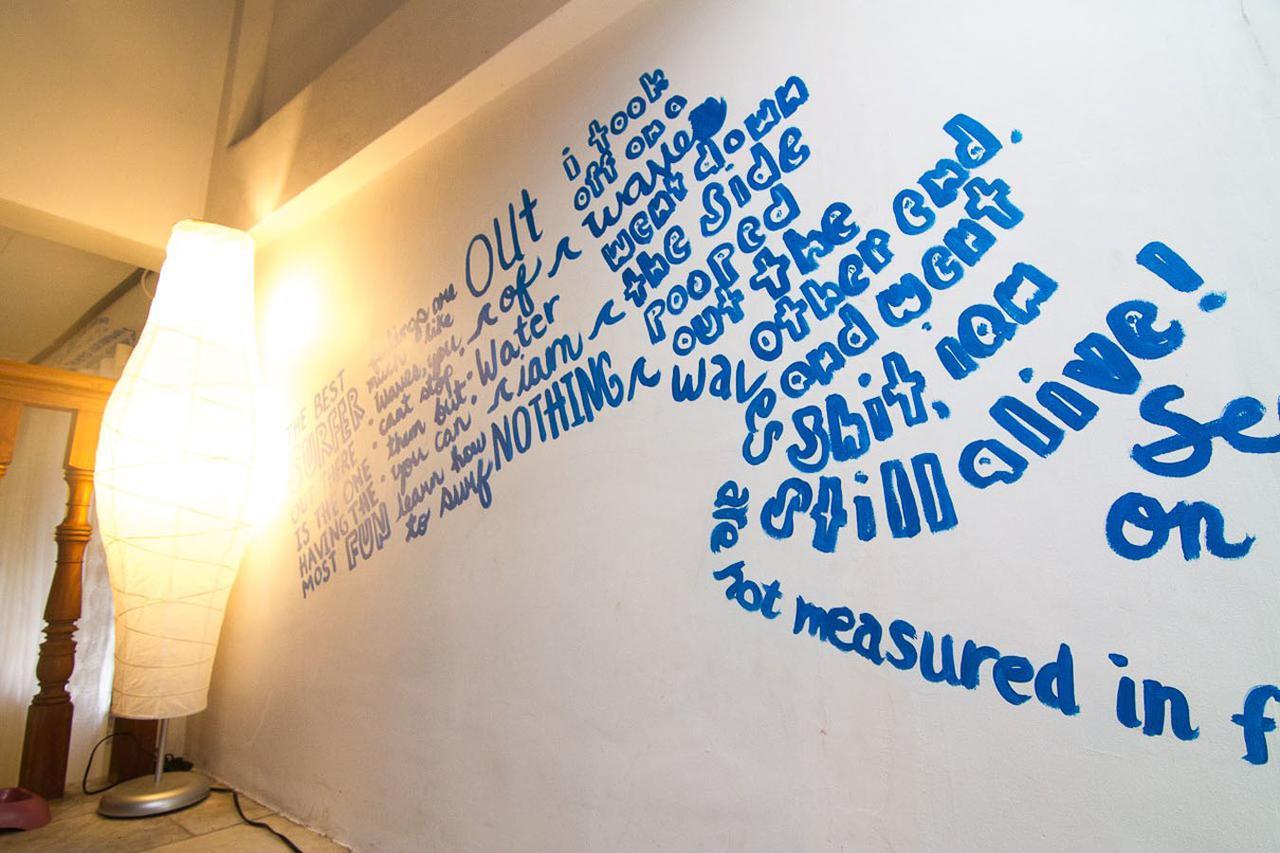 THE BEST
SURFER
OUT THERE
IS THE ONE
HAVING THE
MOST FUN
feelings are
much like
waves, you
cant stop
them but
you can
learn how
to surf
OUt
of
Water
iam
NOTHING
i took
off on a
wave
went down
the side
pooped
out the
other end.
and went
shit. ian
still alive!
waves
are not measured in f
Se
on